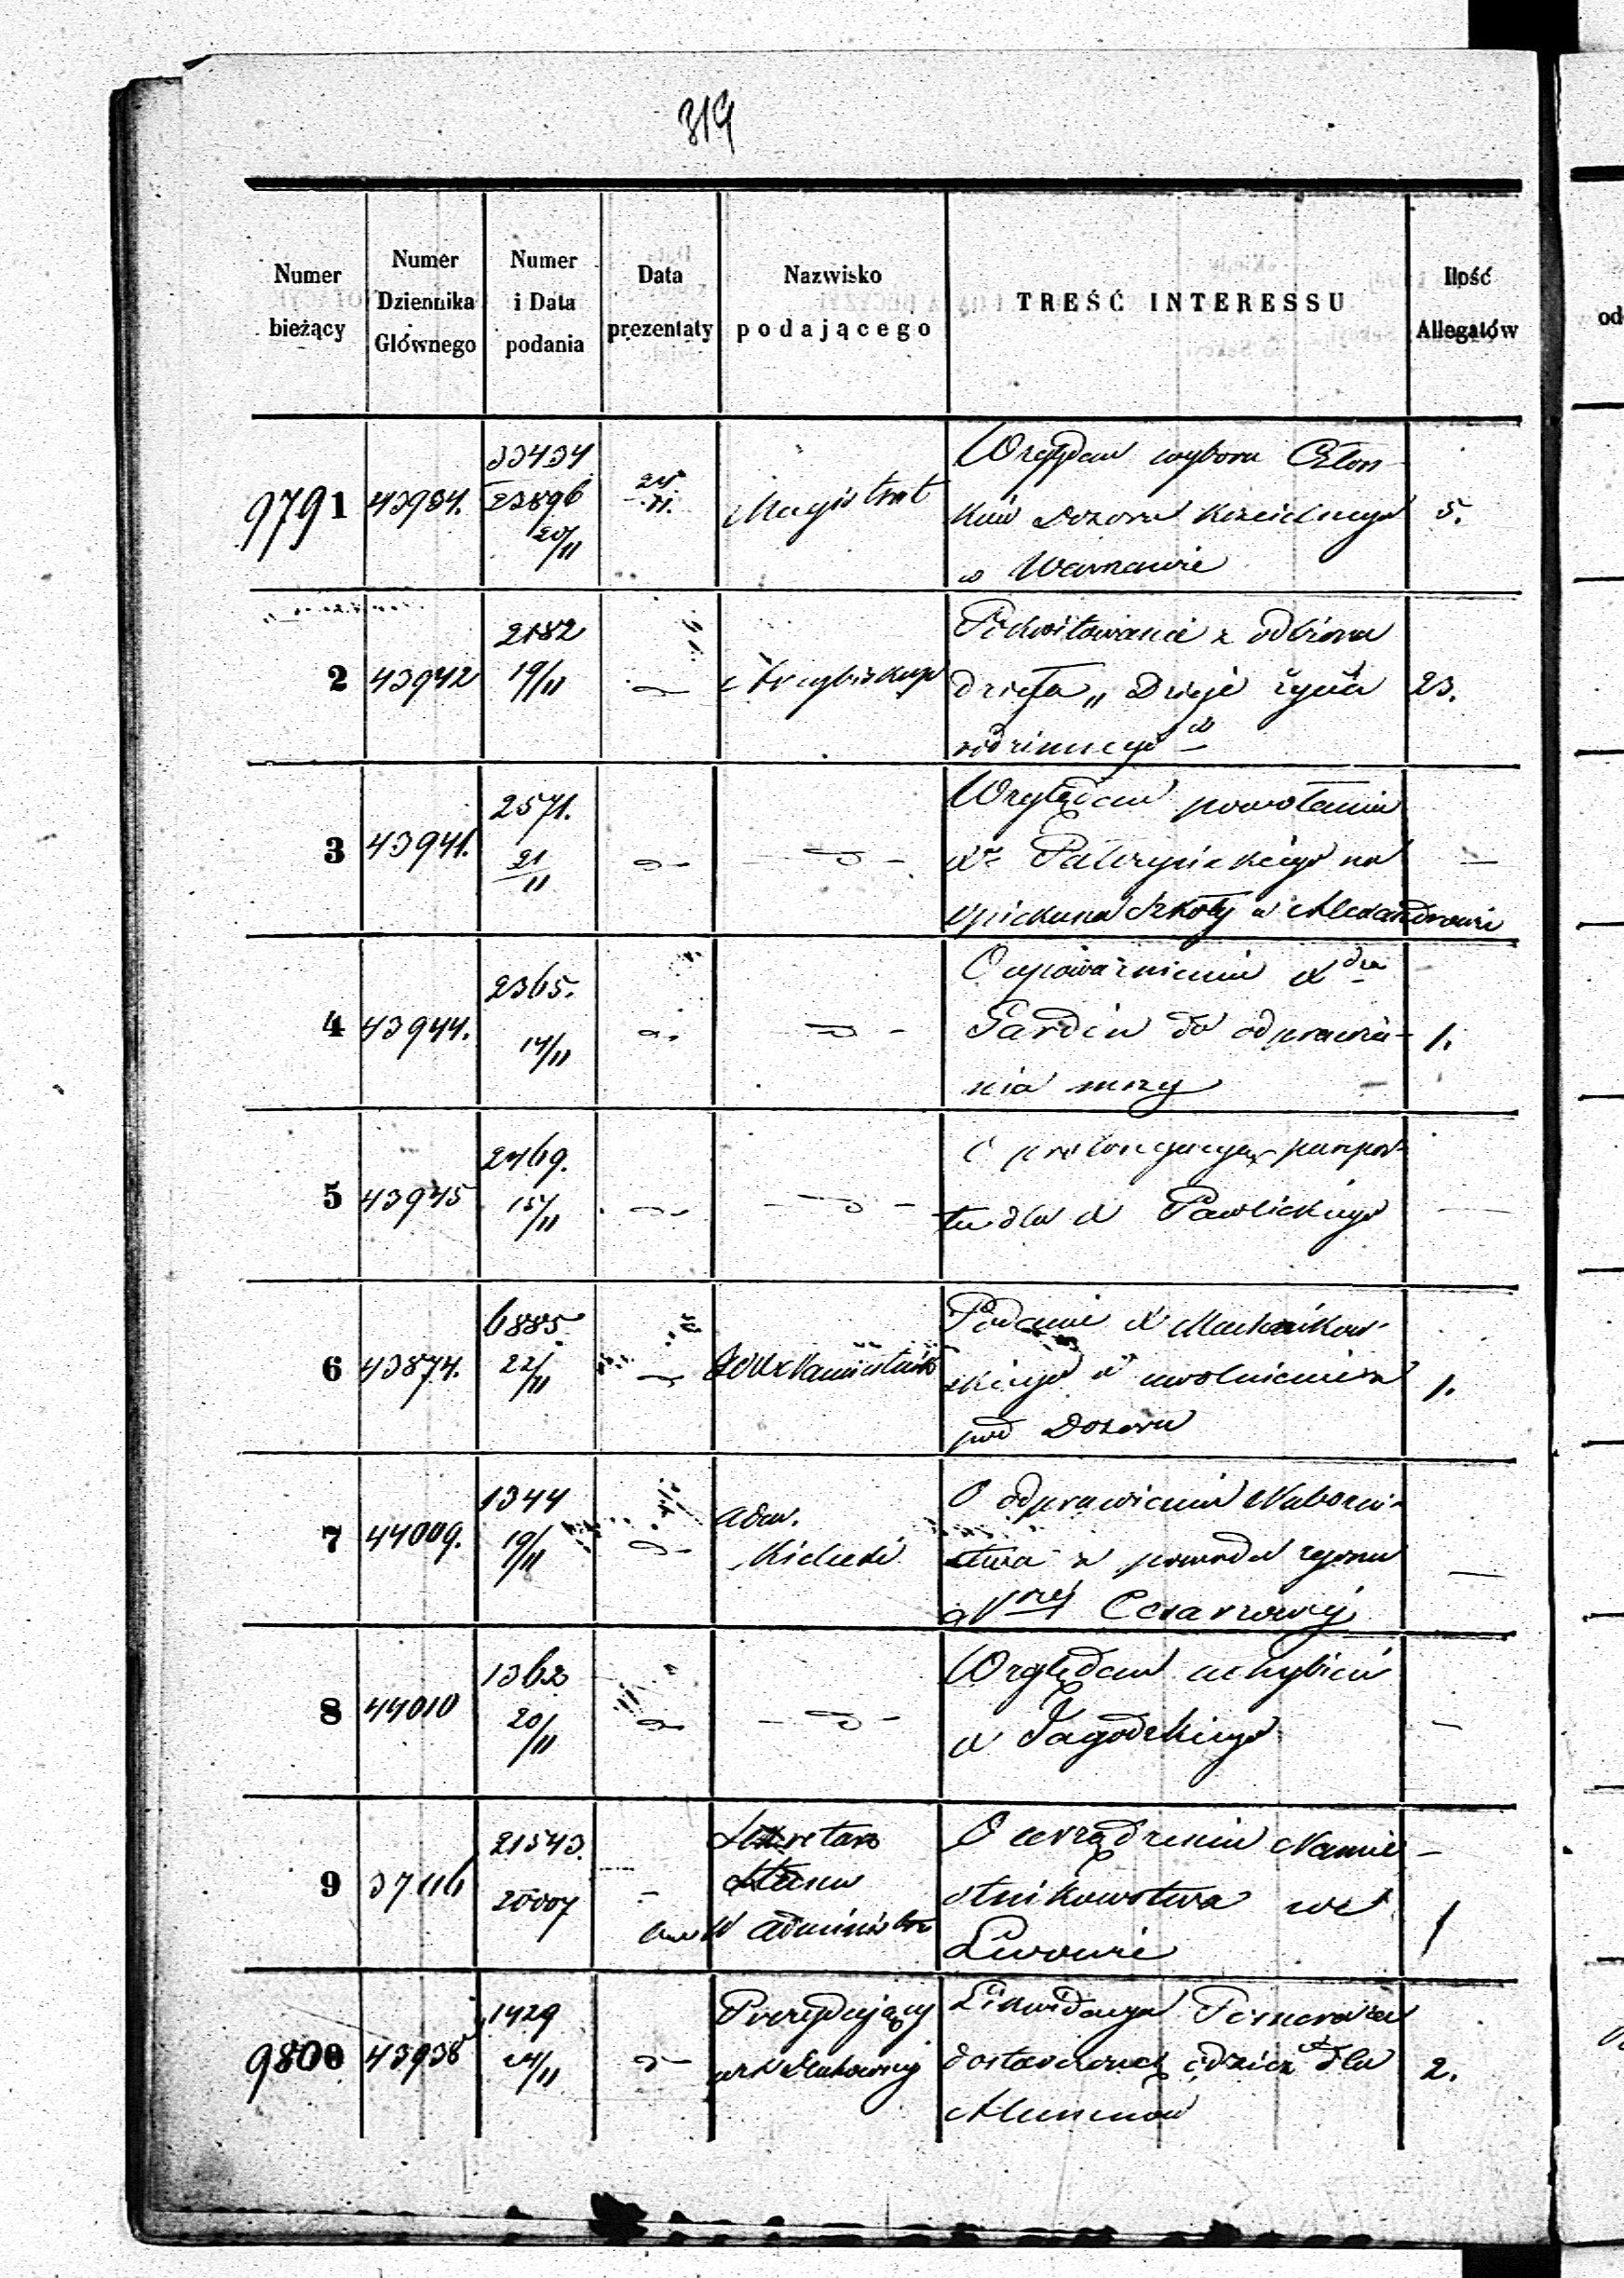 319
Numer bieżący
Numer Dziennika Głównego
Numer i Data podania
Data prezentaty
Nazwisko podającego
TREŚĆ INTERESSU
Ilość Allegatów
9791 43934. 33434
23896
20/11
Magistrat
Względem wyboru Człon-
ków Dozoru Kościelnego
w Warszawie
5.
2 43942 2182
19/11
Arcybiskup
Pokwitowanie z odbioru
dzieła „Dzieje życia
rodzinnego"
23.
3 43941. 2571.
21/11
Względem powołania
Xa
na
Opiekuna Szkoły w Alexandrowie
—
4 43944. 2365.
14/11
O upoważnienie Xdza
Jardin do odprawia-
nia mszy
1.
5 43945 2469.
15/11
O prolongacyę paszpor-
tu dla X Pawlickiego
—
6 43874. 6885
22/11
Namiestnik
Podanie X
skiego o uwolnienie z
pod Dozoru
1.
7 44009. 1344
19/11
Adm.
Kielecki
O odprawieniu Nabożeń-
stwa z powodu zgonu
Cesarzowej
—
8 44010 1362
20/11
Względem uchybień
X Jagodzkiego
—
9 37116 21543.
20007
Sekretarz
Stanu
O urządzeniu Namie-
stnikowstwa we
Lwowie
1
9800 43938 1429
24/11
Prezydujący
w K Duchownej
Likwidacya
dostawionej odzieży dla
Alumnów
2.